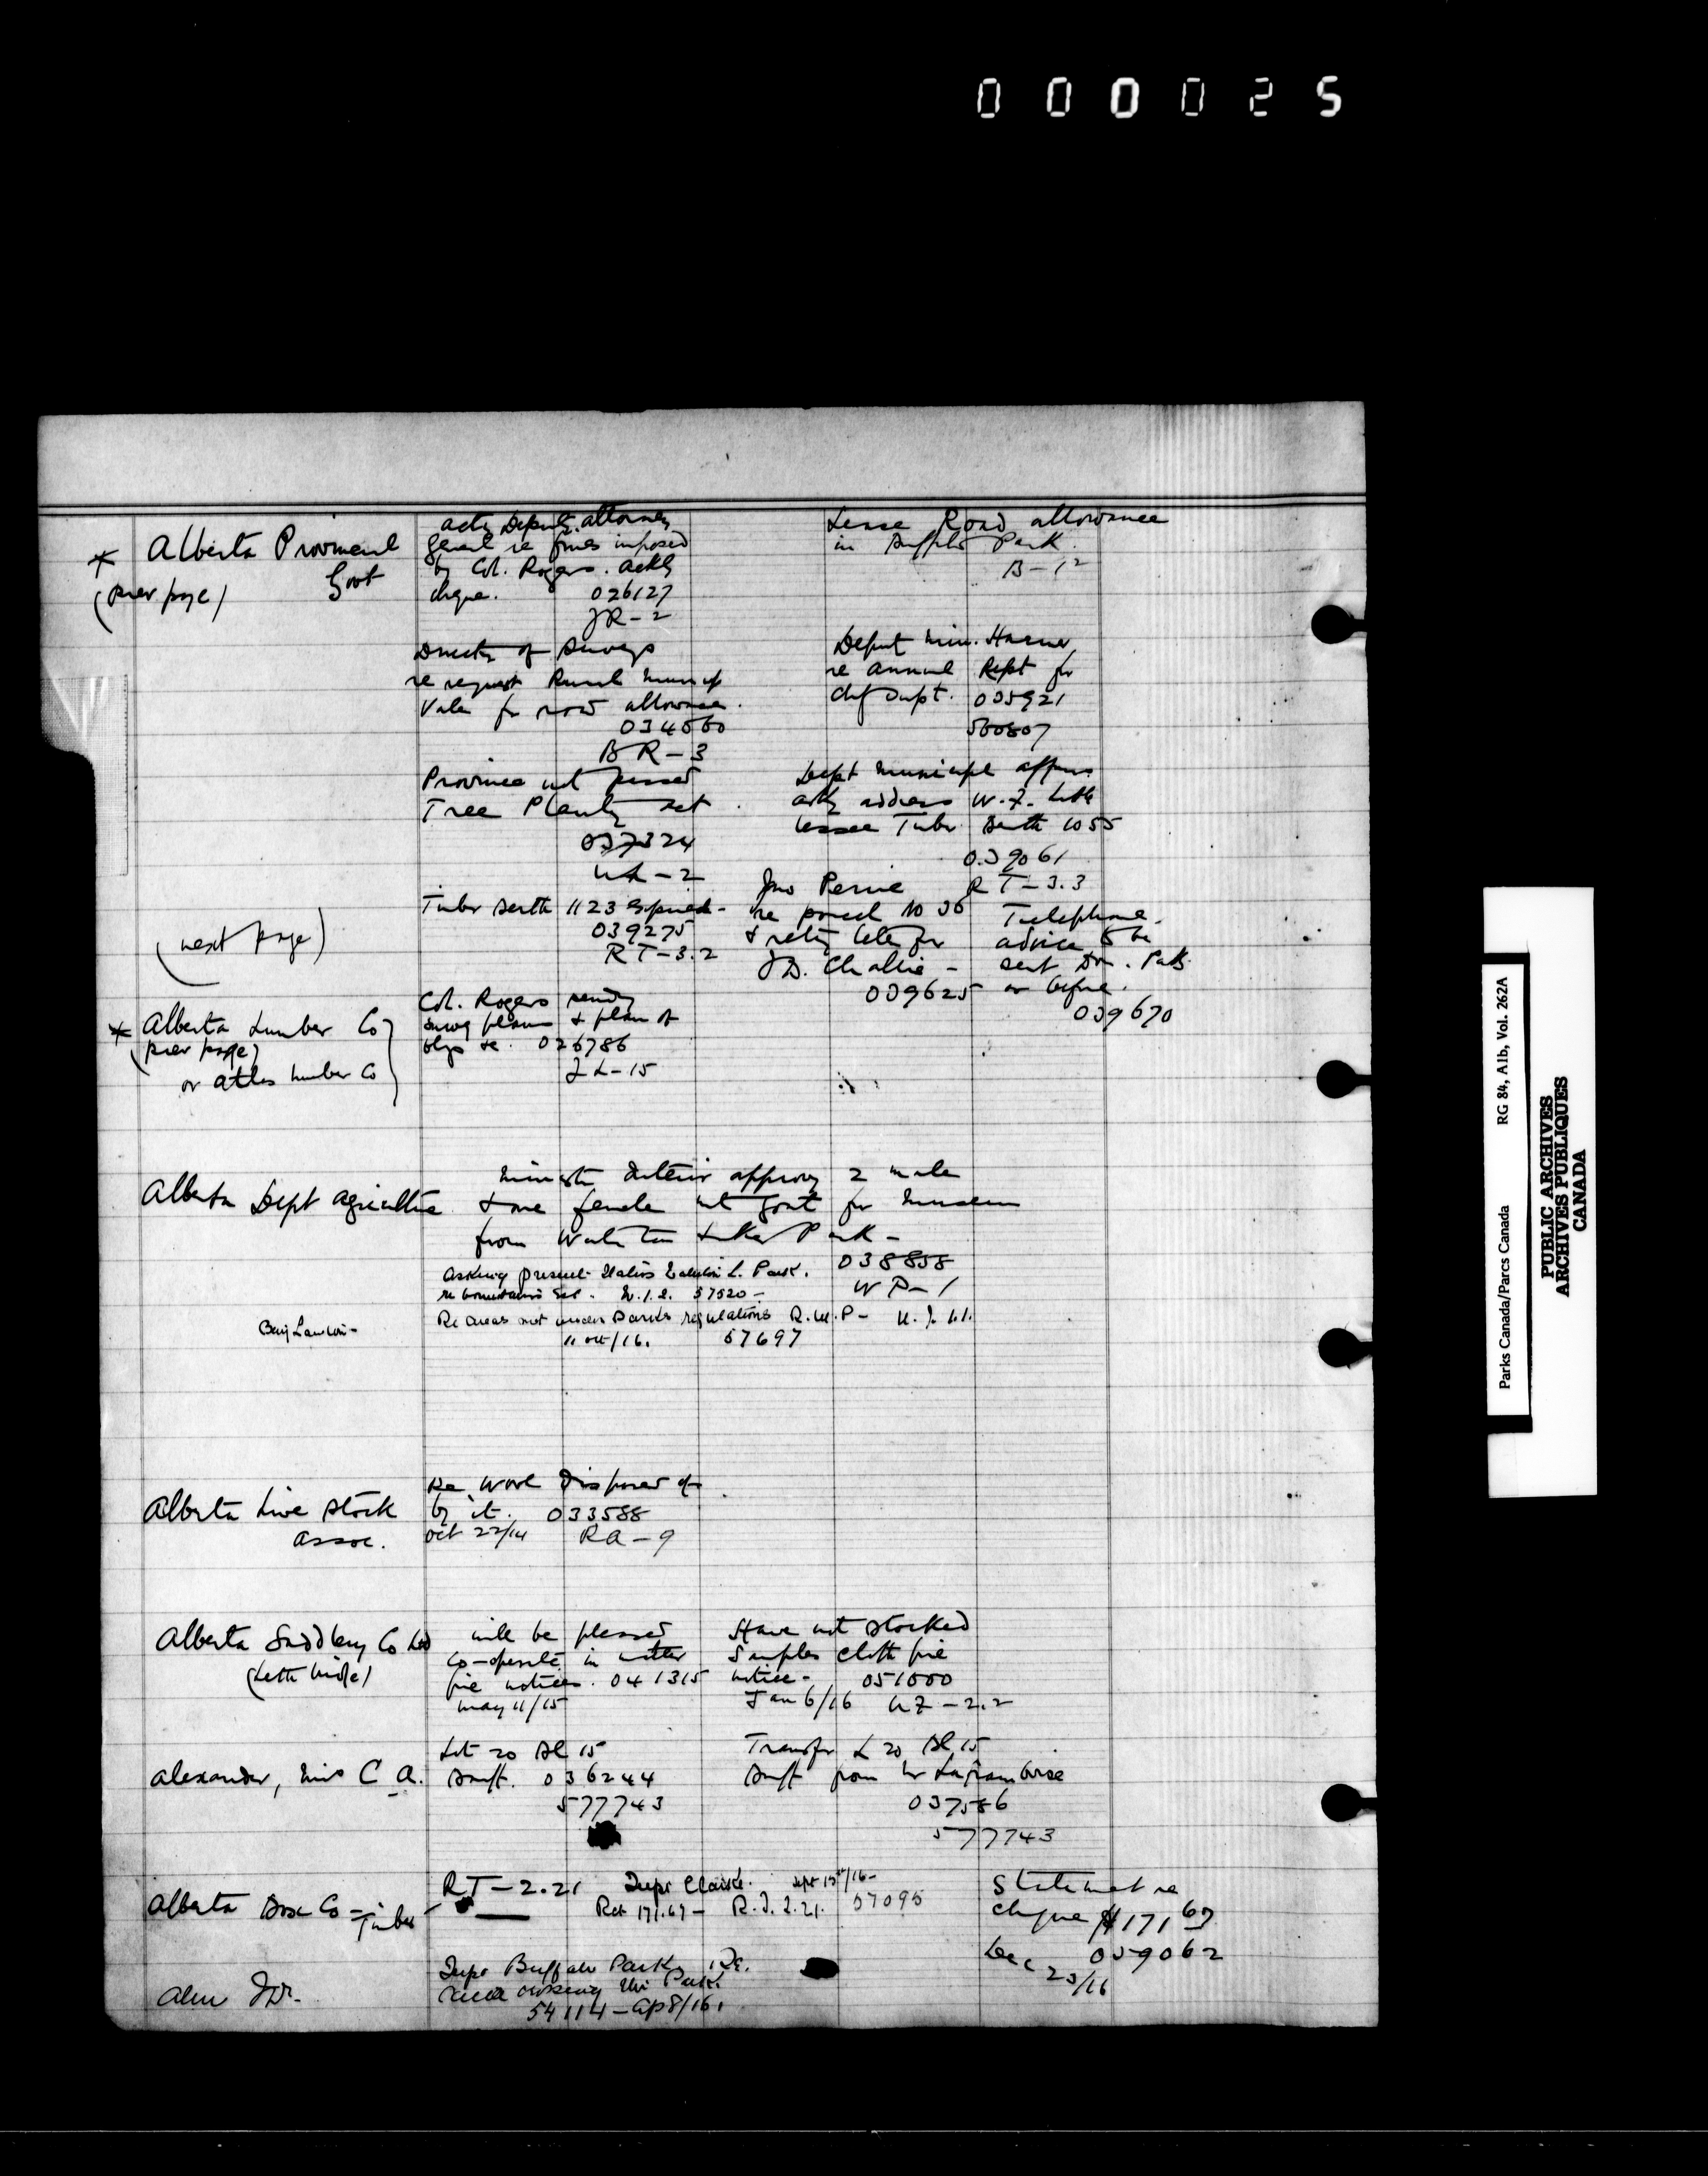 000025
* Alberta Provincial Govt
(prev page)
Actg Deputy Attorney
General re fines imposed
by Col. Rogers. Ackg
cheque. 026127
JR-2
Lease Road allowance
in Buffalo Park.
B-12
Director of Surveys
re request Rural
Vale for road allowance.
034560
BR-3
Deput Min.
re annual Rept for
Chf Supt. 035921
560807
Province not passed
Tree Planting Act
037324
-2
Dept Municipal Affairs
ackg address W.F. Little
lessee Timber Berth 1055
039061
RT-3.3
Timber Berth 1123 Expired-
039275
RT-3.2
Jno Pernie
re parcel No 36
& retg letter for
J.D. Challie-
039625
Telephone
advice to be
sent Dom. Parks
or before.
039670
(next page)
* Alberta Lumber Co
(prev page)
or Atlas Lumber Co
Col. Rogers sending
survey plans & plan of
bldgs &c. 026786
JL-15
Alberta Dept Agriculture
Minister Interior approving 2 male
& one female for Museum
from Waterton Lakes Park-
038858
WP-1
Asking present status Waterton L. Park.
57520-
Re areas not under Parks regulations R.W.P-
11 Oct/16. 57697
Benj Lawton-
Alberta Live Stock
Assoc.
Re Wool Disposed of
by it. 033588
Oct 22/14 RA-9
Alberta Saddlery Co Ltd
(Lethbridge)
will be pleased
co-operate in matter
fire notices. 041315
May 11/15
Have not stocked
Samples cloth fire
notice- 051000
Jan 6/16 -2.2
Alexander, Miss C A.
Lot 20 Bl 15
Banff. 036244
577743
Transfer L 20 Bl 15
Banff from Laframboise
037586
577743
Alberta Box Co-Timber
RT-2.21 Supt Clarke. Sept 15th/16-
Ret 171.67- R.T.2.21. 57095
Statement re
cheque $171 67
059062
Dec 23/16
Supt Buffalo Park, Re.
crossing the Park.
54114-Ap 8/16.
RG 84, Alb, Vol. 262A
Parks Canada/Parcs Canada
PUBLIC ARCHIVES
ARCHIVES PUBLIQUES
CANADA